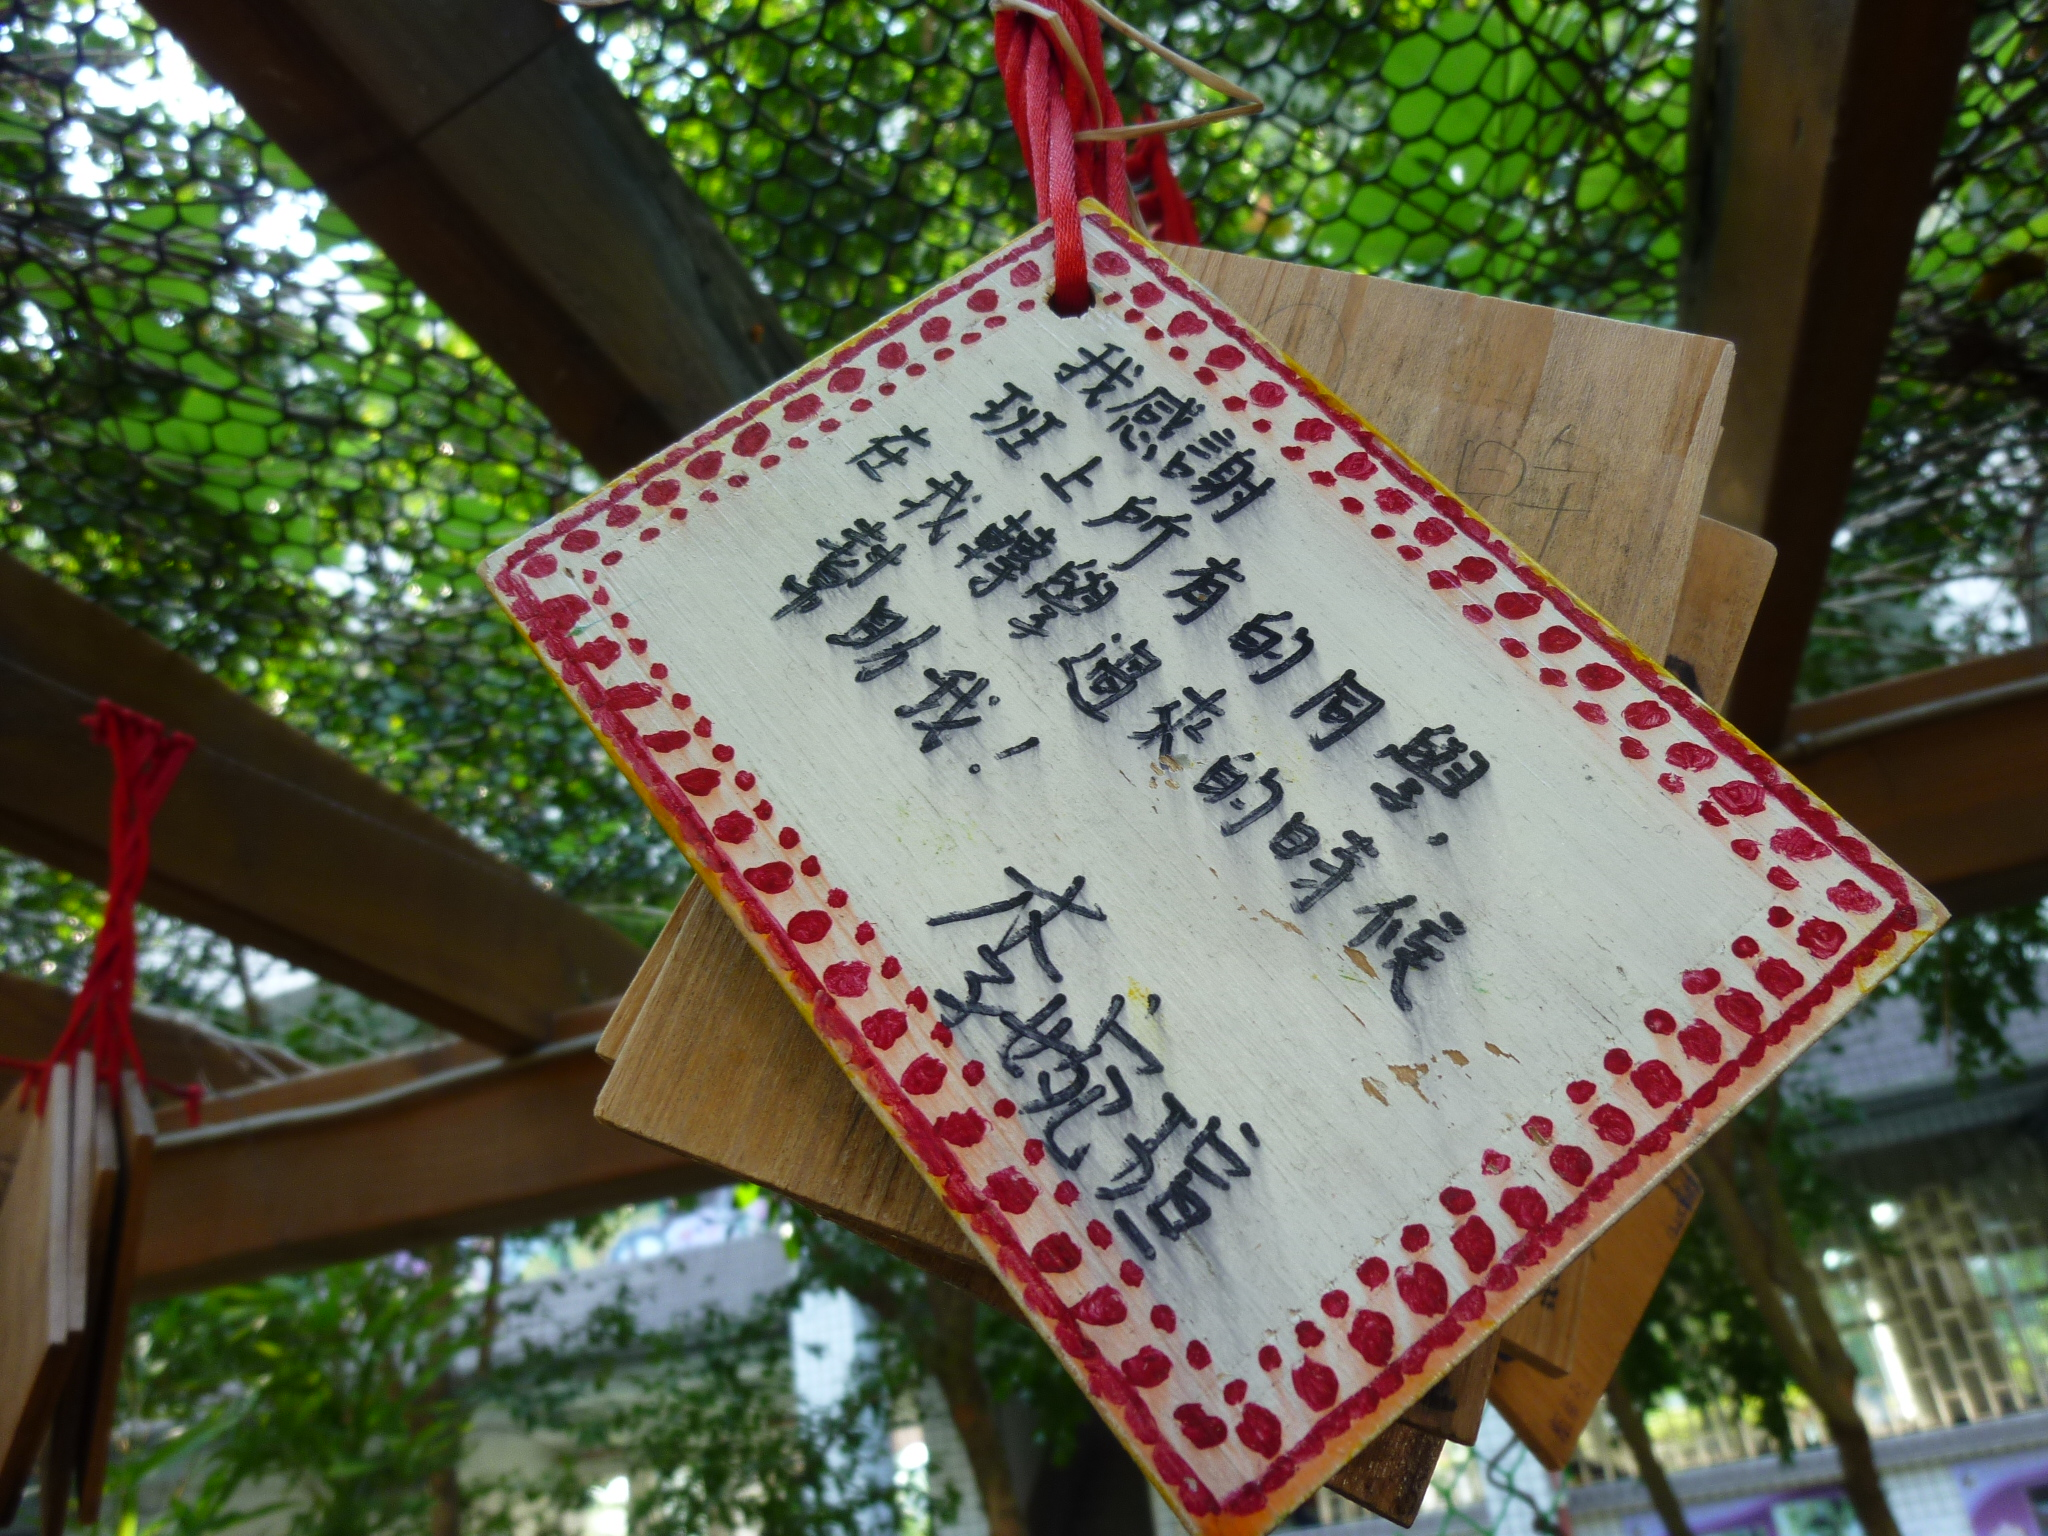 我感謝
班上所有的同學,
在我轉學過來的時候
幫助我!